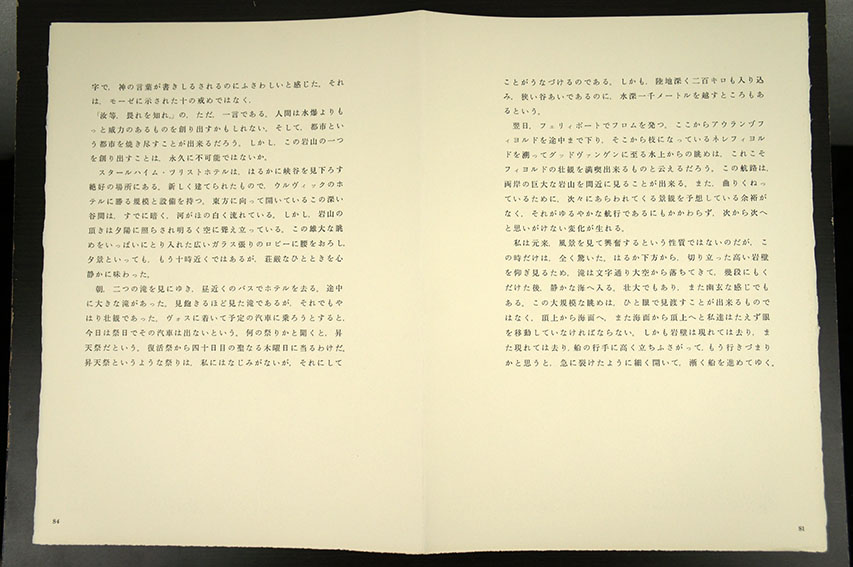 字で，神の言葉が書きしるされるのにふさわしいと感じた。それ
は，モーゼに示された十の戒めではなく，
「汝等，畏れを知れ。」の，ただ，一言である。人間は水爆よりも
っと威力のあるものを創り出すかもしれない。そして，都市とい
う都市を焼き尽すことが出来るだろう。しかし，この岩山の一つ
を創り出すことは，永久に不可能ではないか。
スタールハイム・ツリストホテルは，はるかに峡谷を見下ろす
絶好の場所にある。新しく建てられたもので，ウルヴィックのホ
テルに勝る規模と設備を持つ。東方に向って開いているこの深い
谷間は，すでに暗く，河がほの白く流れている。しかし，岩山の
頂きは夕陽に照らされ明るく空に聳え立っている。この雄大な眺
めをいっぱいにとり入れた広いガラス張りのロビーに腰をおろし，
夕景といっても，もう十時近くではあるが，荘厳なひとときを心
静かに味わった。
朝，二つの滝を見にゆき，昼近くのバスでホテルを去る。途中
に大きな滝があった。見飽きるほど見た滝であるが，それでもや
はり壮観であった。ヴォスに着いて予定の汽車に乗ろうとすると，
今日は祭日でその汽車は出ないという。何の祭りかと聞くと，昇
天祭だという。復活祭から四十日目の聖なる木曜日に当るわけだ。
昇天祭というような祭りは，私にはなじみがないが，それにして
84
ことがうなづけるのである。しかも，陸地深く二百キロも入り込
み，狭い谷あいであるのに，水深一千メートルを越すところもあ
るという。
翌日，フェリィボートでフロムを発つ。ここからアウランヅフ
ィヨルドを途中まで下り，そこから枝になっているネレフィヨル
ドを溯ってグッドヴァンゲンに至る水上からの眺めは，これこそ
フィヨルドの壮観を満喫出来るものと云えるだろう。この航路は，
両岸の巨大な岩山を間近に見ることが出来る。また，曲りくねっ
ているために，次々にあらわれてくる景観を予想している余裕が
なく，それがゆるやかな航行であるにもかかわらず，次から次へ
と思いがけない変化が生れる。
私は元来，風景を見て興奮するという性質ではないのだが，こ
の時だけは，全く驚いた。はるか下方から，切り立った高い岩壁
を仰ぎ見るため，滝は文字通り大空から落ちてきて，幾段にもく
だけた後，静かな海へ入る。壮大でもあり，また幽玄な感じでも
ある。この大規模な眺めは，ひと眼で見渡すことが出来るもので
はなく，頂上から海面へ，また海面から頂上へと私達はたえず眼
を移動していなければならない。しかも岩壁は現れては去り，ま
た現れては去り，船の行手に高く立ちふさがって，もう行きづまり
かと思うと，急に裂けたように細く開いて，漸く船を進めてゆく。
81